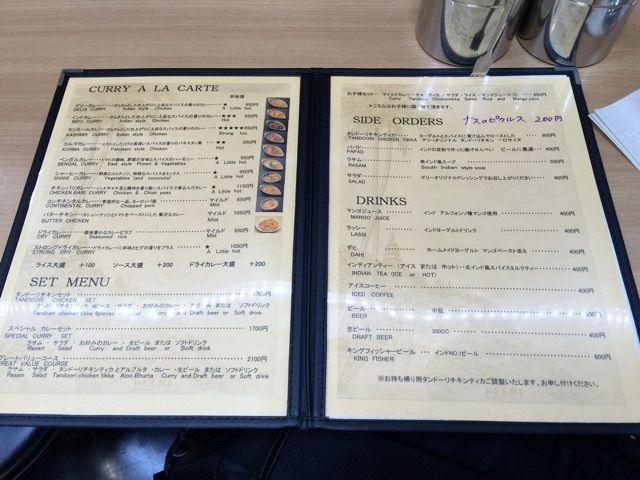 CURRY A LA CARTE
辛味度
デリーカレー ★ 950円
DELHI CURRY Indian style Chicken A little hot
インドカレー ★★★ 950円
INDO CURRY Indian style Chicken Hot
カシミールカレー ★★★★★ 950円
KASHMIR CURRY Indian style Chicken Strong hot
コルマカレー ★ 950円
KORMA CURRY Pakistani style Chicken A little hot
ベンガルカレー ★ 950円
BENGAL CURRY East style Prown & Vegetables A little hot
シャーヒーカレー ★ 950円
SHAHI CURRY Vegetables (and coconuts) A little hot
チキンバリカレー ★ 1150円
CHICKEN BARI CURRY Chicken & Chick peas A little hot
コンチネンタルカレー マイルド 850円
CONTINENTAL CURRY Chopped pork Mild
バターチキン カシューナッツとトマトをベースにした 贅沢なカレー マイルド 1050円
BUTTER CHICKEN Mild
ドライカレー 風味豊かなカレーピラフ マイルド 950円
DRY CURRY Seasoned rice Mild
ストロングドライカレー ドライカレーに辛味とヒデの香りをプラス ★ 1050円
STRONG DRY CURRY A little hot
ライス大盛 +100 ソース大盛 +200 ドライカレー大盛 +200
SET MENU
タンドーリチキンセット 1700円
TANDOORI CHICKEN SET
タンドーリチキンティカ 4ピース ・ サラダ ・ お好みのカレー ・ 生ビール または ソフトドリンク
Tandoori chicken tikka 4pieces Salad Curry and Draft beer or Soft drink
スペシャル カレーセット 1700円
SPECIAL CURRY SET
ラサム ・ サラダ ・ お好みのカレー ・ 生ビール または ソフトドリンク
Rasam Salad Curry and Draft beer or Soft drink
グレートバリューコース 2100円
GREAT VALUE COURSE
ラサム ・ サラダ ・ タンドーリチキンティカとアルブルタ ・ カレー ・ 生ビール または ソフトドリンク
Rasam Salad Tandoori chicken tikka Aloo Bhurta Curry and Draft beer or Soft drink
お子様セット マイルドカレー ・ チキンティカ ・ サラダ ・ ライス ・ マンゴジュース 800円
Curry Tandoori Chickentikka Salad Rice and Mango juice
★こちらはお子様に限らせて頂きます。
SIDE ORDERS ナスのピクルス 200円
タンドーリチキンティカ ヨーグルトとスパイスに漬け込んでローストした
TANDOORI CHICKEN TIKKA デリーオリジナル タンドーリチキン
パパド インドの豆粉で作った揚げせんべい ビールに最適
PAPAD
ラサム 南インド風スープ
RASAM South Indian style soup
サラダ デリーオリジナルドレッシングでお召し上がりください
SALAD
DRINKS
マンゴジュース インド アルフォンソ種マンゴ使用 400円
MANGO JUICE
ラッシー インドヨーグルトドリンク 400円
LASSI
ダヒ ホームメイドヨーグルト マンゴペースト添え 400円
DAHI
インディアンティー (アイス または ホット) 北インド風スパイスミルクティー 400円
INDIAN TEA (ICE or HOT)
アイスコーヒー 400円
ICED COFFEE
ビール 中瓶
BEER
生ビール 350CC 400円
DRAFT BEER
キングフィッシャービール インドNO.1ビール 600円
KING FISHER
※お持ち帰り用タンドーリチキンティカご調製いたします。お申し付けください。